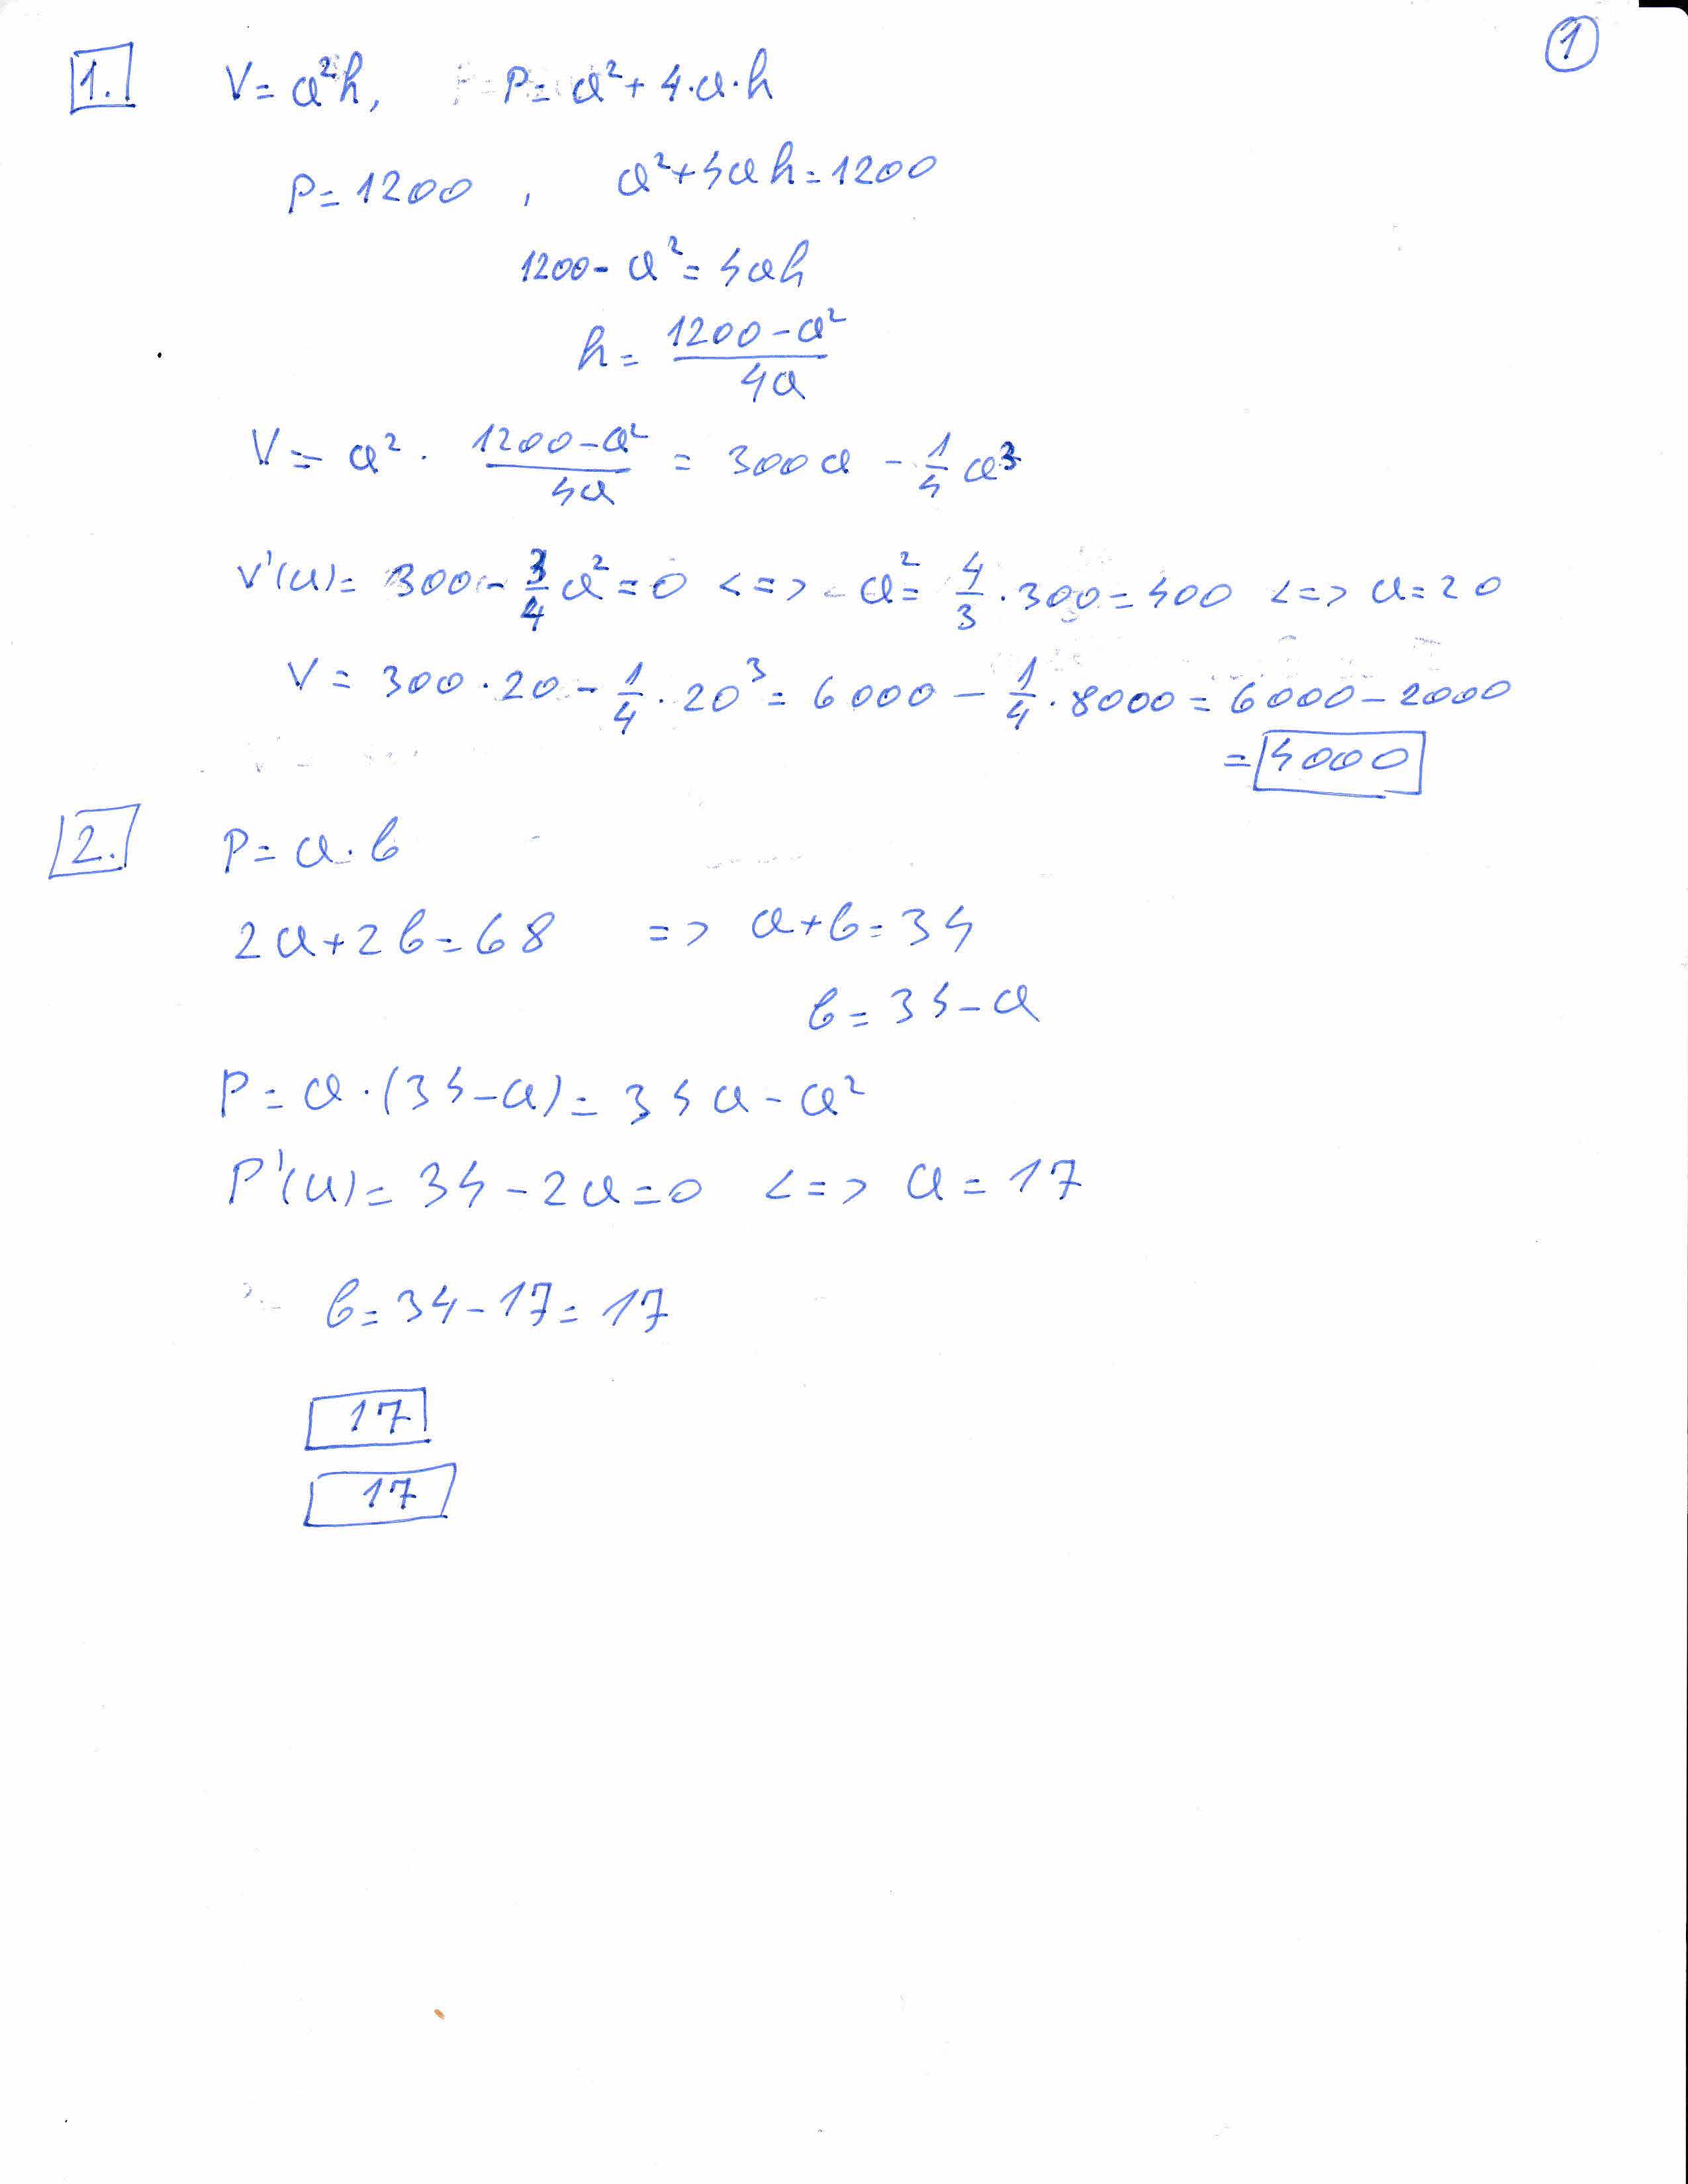 ①
1. V = a²h, P = a² + 4·a·h
P = 1200 , a² + 4ah = 1200
1200 - a² = 4ah
h = (1200 - a²)/(4a)
V = a² · (1200 - a²)/(4a) = 300a - 1/4 a³
V'(a) = 300 - 3/4 a² = 0 <=> a² = 4/3 · 300 = 400 <=> a = 20
V = 300 · 20 - 1/4 · 20³ = 6000 - 1/4 · 8000 = 6000 - 2000
= 4000
2. P = a · b
2a + 2b = 68 => a + b = 34
b = 34 - a
P = a · (34 - a) = 34a - a²
P'(a) = 34 - 2a = 0 <=> a = 17
b = 34 - 17 = 17
17
17